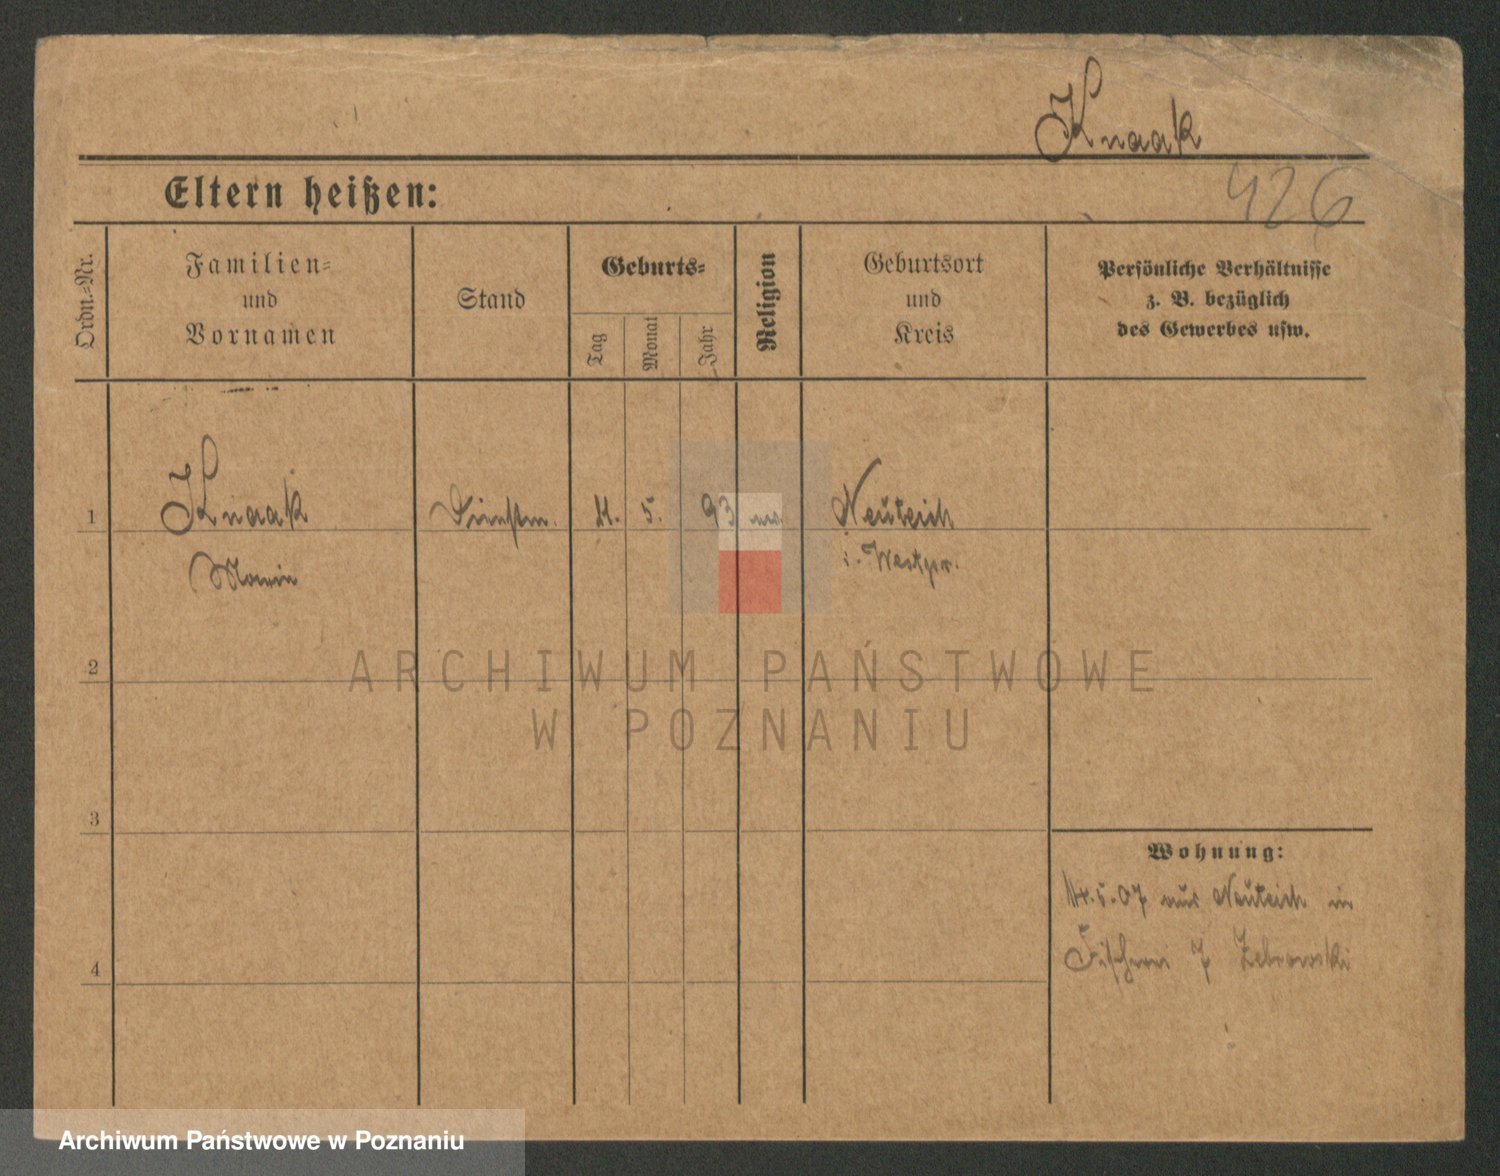 Knaak
Eltern heißen:
426
Ordn.=Nr.
Familien=
und
Vornamen
Stand
Geburts=
Tag
Monat
Jahr
Religion
Geburtsort
und
Kreis
Persönliche Verhältnisse
z. B. bezüglich
des Gewerbes usw.
1
Knaak
Dienstm.
5.
93
Neuteich
i. Westpr.
2
ARCHIWUM PAŃSTWOWE
W POZNANIU
3
Wohnung:
14.5.07 aus Neuteich in
Fischerei 7 Zebrowski
4
Archiwum Państwowe w Poznaniu